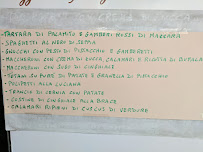 -TARTARA DI PALAMITO E GAMBERI ROSSI DI MAZZARA
- SPAGHETTI AL NERO DI SEPPIA
- GNOCCHI CON PESTO DI PISTACCHIO E GAMBERETTI
- MACCHERONI CON CREMA DI ZUCCA, CALAMARI E RICOTTA DI BUFALA
- MACCHERONI CON SUGO DI CINGHIALE
- TOTANI SU PURÈ DI PATATE E GRANELLA DI PISTACCHIO
- POLPETTI ALLA LUCIANA
- TRANCIO DI OMBRINA CON PATATE
- COSTINE DI CINGHIALE ALLA BRACE
- CALAMARI RIPIENI DI CUSCUS DI VERDURA